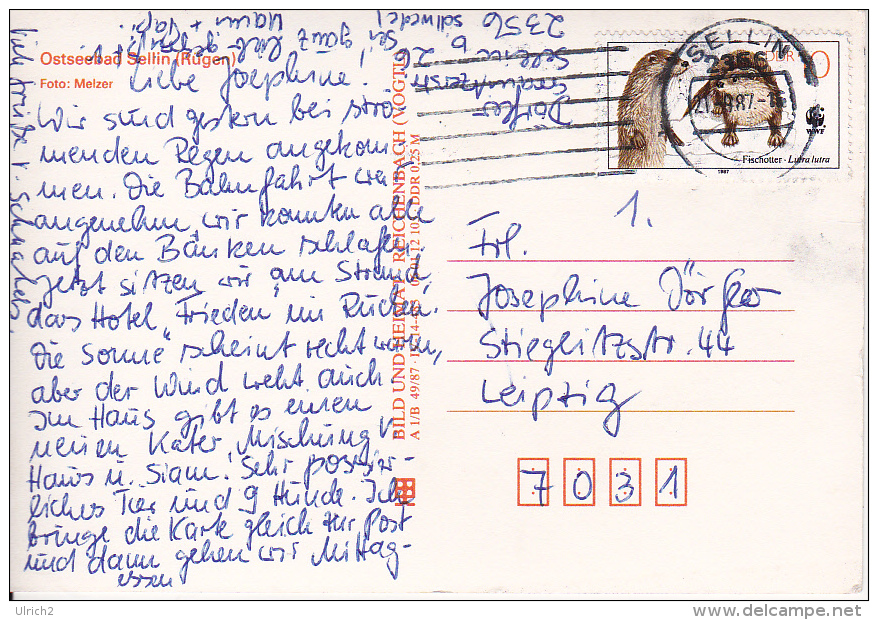 Ostseebad Sellin (Rügen)
Foto: Melzer
Liebe Josephine!
Wir sind gestern bei strö-
menden Regen angekom-
men. Die Bahnfahrt war
angenehm, wir konnten alle
auf den Bänken schlafen.
Jetzt sitzen wir am Strand
das Hotel "Frieden" im Rücken.
Die Sonne scheint recht warm,
aber der Wind weht auch.
Im Haus gibt es einen
neuen Kater, Mischung v.
Haus u. Siam! Sehr possier-
liches Tier und 9 Hunde. Ich
bringe die Karte gleich zur Post
und dann gehen wir Mittag-
essen
Sei ganz lieb
Mami + Papi
Dörfer
Sellin
2356
BILD UND HEIMAT REICHENBACH (VOGTL)
A 1/B 49/87
DDR 0,25 M
SELLIN
2356
DDR
WWF
Fischotter · Lutra lutra
1987
1.
Frl.
Josephine Dörfer
Stieglitzstr. 44
Leipzig
7031
Ulrich2
delcampe.net